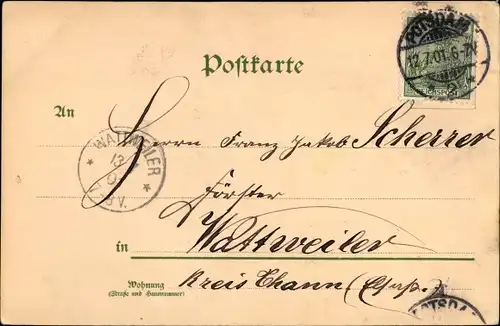 POTSDAM
12.7.01.6-7N
REICHSPOST
Postkarte
An
Herrn Franz Jakob Scherrer
WATTWEILER
13
7
V.
Förster
in Wattweiler
Wohnung
(Straße und Hausnummer)
Kreis Thann (Elsaß.)
POTSDAM